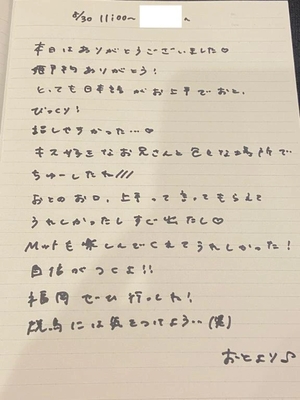 8/30 11:00〜 〜
本日はありがとうございました♡
ありがとう!
とっても日本語がお上手でおと、
びっくり!
話しやすかった…♡
キス好きなお兄さんと色々な場所で
ちゅーしたね///
おとのお口、上手って言ってもらえて
うれしかったしすぐ出たし♡
Mattも楽しんでくれてうれしかった!
自信がつくよ!!
福岡ぜひ行ってね!
焼鳥には気をつけよう…(笑)
おとより♪